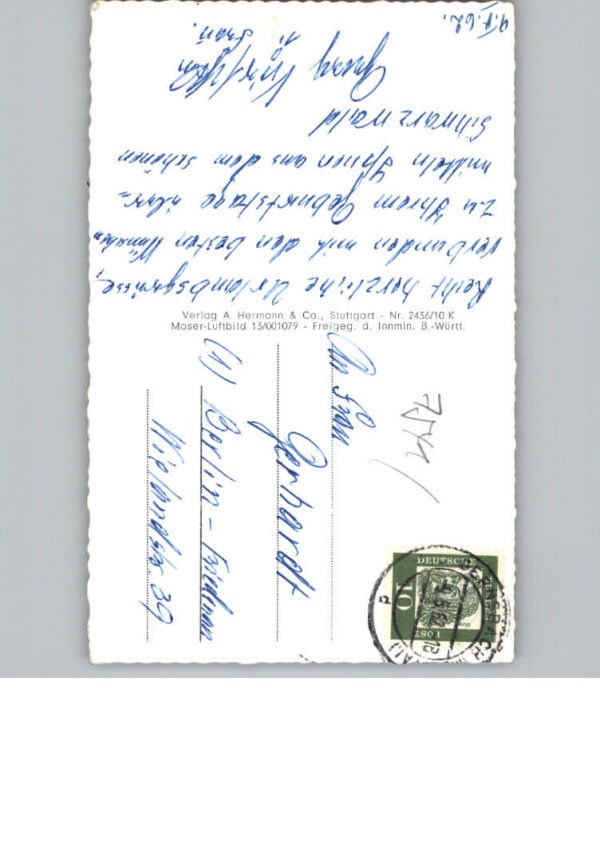 9.V.62.
Recht herzliche Urlaubsgrüsse,
verbunden mit den besten Wünschen
zu Ihrem Geburtstage über-
mitteln Ihnen aus dem schönen
Schwarzwald
u. Frau.
Verlag A. Hermann & Co., Stuttgart - Nr. 2436/10 K
Moser-Luftbild 13/001079 - Freigeg. d. Innmin. B.-Württ.
An Frau
Gerhardt
(1) Berlin - Friedenau
Wielandstr. 39
DEUTSCHE
POST
10